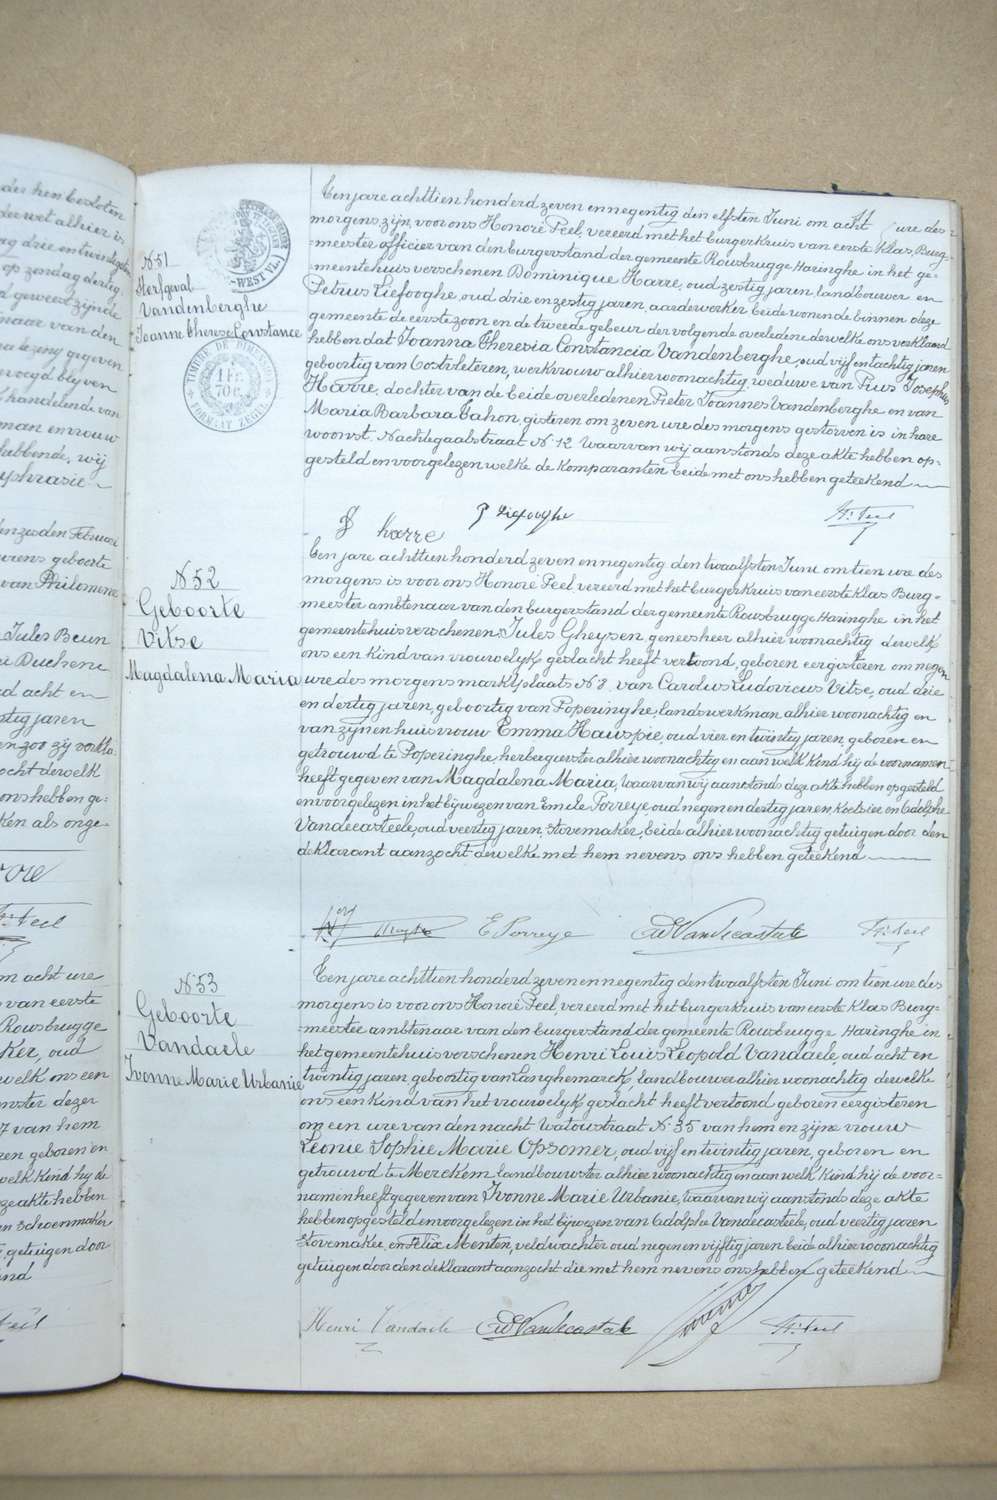 der hen besloten
der wet alhier is
ag drie en twintigsten
op zondag dertig
d geweest zijnde
naar van den
na lezing gegeven
gevoegd blijven
t handelende van
man en vrouw
hebbende, wij
yphrasie
en zesden Februari
urens geboorte
van Philomene
Jules Beun
Duchene
d acht en
stig jaren
ocht derwelk
ons hebben ge=
ken als onge=
St. Feel
m acht ure
van eerste
Rousbrugge
ker, oud
welk ons een
nster dezer
van hem
en geboren en
welk kind hij de
ze akte hebben
en Schoenmaker
getuigen door
end
11
N 51
Sterfgeval
Vandenberghe
Joanne Therese Constance
WEST VL.
TIMBRE DE DIMENSION
1 FR.
70 C.
FORMAAT ZEGEL
Een jare achttien honderd zeven en negentig den elfsten Juni om acht ure des
morgens zijn, voor ons Honoré Feel, vereerd met het burgerkruis van eerste Klas, Burg-
=meester officier van den burgerstand der gemeente Rousbrugge Haringhe in het ge-
=meentehuis verschenen Dominique Harre, oud zestig jaren, landbouwer en
Petrus Liefooghe, oud drie en zestig jaren, aardewerker beide wonende binnen deze
gemeente de eerste zoon en de tweede gebuur der volgende overledene derwelke ons verklaard
hebben dat Joanna Theresia Constancia Vandenberghe, oud vijf en tachtig jaren
geboortig van Oostvleteren, werkvrouw alhier woonachtig, weduwe van Pius Josephus
Harre, dochter van de beide overledenen Pieter Joannes Vandenberghe en van
Maria Barbara Cahon, gisteren om zeven ure des morgens gestorven is in hare
woonst, Nachtegaalstraat N 12 Waarvan wij aanstonds deze akte hebben op-
gesteld en voorgelezen welke de komparanten beide met ons hebben geteekend
harre P Liefooghe St. Feel
N 52
Geboorte
Vitse
Magdalena Maria
Een jare achttien honderd zeven en negentig den twaalfsten Juni om tien ure des
morgens is voor ons Honoré Feel, vereerd met het burgerkruis van eerste Klas Burg-
meester ambtenaar van den burgerstand der gemeente Rousbrugge Haringhe in het
gemeentehuis verschenen Jules Gheysen, geneesheer alhier woonachtig derwelk
ons een kind van vrouwelyk geslacht heeft vertoond, geboren eergisteren om negen
ure des morgens marktplaats N 8, van Carolus Ludovicus Vitse, oud drie
en dertig jaren, geboortig van Poperinghe, landswerkman alhier woonachtig en
van zijnen huisvrouw Emma Hauspie, oud vier en twintig jaren, geboren en
getrouwd te Poperinghe, herbergierster alhier woonachtig en aan welk kind hij de voornamen
heeft gegeven van Magdalena Maria, Waarvan wij aanstonds deze akte hebben opgesteld
en voorgelezen in het bijwezen van Emile Porreye oud negen en dertig jaren, koetsier en Adolphe
Vandecasteele, oud veertig jaren, stovemaker, beide alhier woonachtig getuigen door den
deklarant aanzocht derwelke met hem nevens ons hebben geteekend
E Porreye AdVandecasteele St. Feel
N 53
Geboorte
Vandaele
Ivonne Marie Urbanie
Een jare achttien honderd zeven en negentig den twaalfsten Juni om tien ure des
morgens is voor ons Honoré Feel, vereerd met het burgerkruis van eerste Klas Burg-
=meester ambtenaar van den burgerstand der gemeente Rousbrugge Haringhe in
het gemeentehuis verschenen Henri Louis Leopold Vandaele, oud acht en
twintig jaren geboortig van Langhemarck, landbouwer alhier woonachtig derwelke
ons een kind van het vrouwelyk geslacht heeft vertoond geboren eergisteren
om een ure van den nacht Watoustraat N 35 van hem en zijne vrouw
Leonie Sophie Marie Opsomer, oud vijf en twintig jaren, geboren en
getrouwd te Merckem landbouwster alhier woonachtig en aan welk kind hij de voor=
namen heeft gegeven van Ivonne Marie Urbanie, waarvan wij aanstonds deze akte
hebben opgesteld en voorgelezen in het bijwezen van Adolphe Vandecasteele, oud veertig jaren
stovemaker, en Felix Menten, veldwachter oud negen en vijftig jaren beide alhier woonachtig
getuigen door den deklarant aanzocht die met hem nevens ons hebben geteekend
Henri Vandaele AdVandecasteele St. Feel